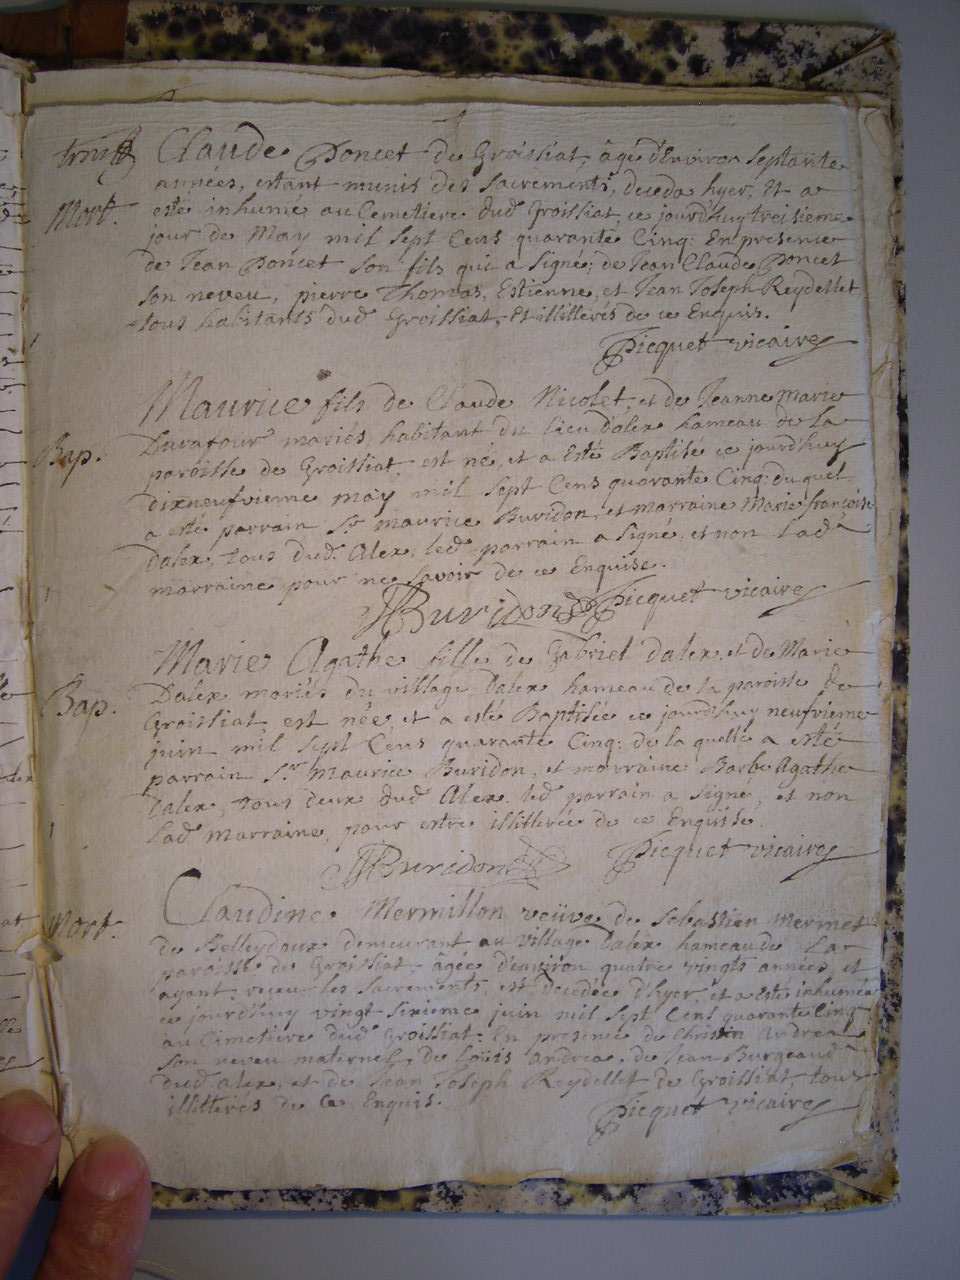 Claude Poncet de Groissiat, âgé d'Environ septante
Mort.
années, estant munis des sacrements, deceda hyer, Et a
esté inhumé au Cemetiere dud Groissiat, ce jourd'huy troisieme
jour de May mil sept Cens quarante Cinq: En presence
de Jean Poncet son fils qui a signé; de Jean Claude Poncet
son neveu, pierre Thomas, Estienne, et Jean Joseph Reydellet
tous habitants dud Groissiat, Et illiterés de ce Enquis.
Picquet vicaire
Bap.
Maurice fils de Claude Nicolet, et de Jeanne Marie
Durafour mariés, habitant du lieu Dalex hameau de la
paroisse de Groissiat, est né, et a Esté Baptisé ce jourd'huy
dixneufvieme may mil sept Cens quarante Cinq: duquel
a esté parrain Sr maurice Buridon, et marraine Marie françoise
Dalex, tous dud. Alex, led parrain a signé, et non lad
marraine pour ne savoir de ce Enquise.
Buridon Picquet vicaire
Bap.
Marie Agathe fille de Gabriel dalex, et de Marie
Dalex mariés du village Dalex hameau de la paroisse de
Groissiat est née et a esté Baptisée ce jourd'huy neufvieme
juin mil sept Cens quarante Cinq: de la quelle a esté
parrain Sr Maurice Buridon, et marraine Barbe Agathe
Dalex, tous deux dud Alex. led parrain a signé, et non
lad marraine, pour estre illitterée de ce Enquise.
Buridon Picquet vicaire
Mort.
Claudine Mermillon veüve de Sebastien Mermet
de Belleydoux demeurant au village Dalex hameau de la
paroisse de Groissiat, âgée d'environ quatre vingts années, et
ayant receu les Sacrements, est decedée d'hyer, et a esté inhumée
ce jourd'huy vingt-sixieme juin mil sept Cens quarante Cinq
au Cimetiere dud Groissiat: En presence de Christin Andrea
son neveu maternel, de Loüis andrea, de Jean Burgeaud
dud alex, et de Jean Joseph Reydellet de Groissiat, tous
illitterés de Ce Enquis.
Picquet vicaire